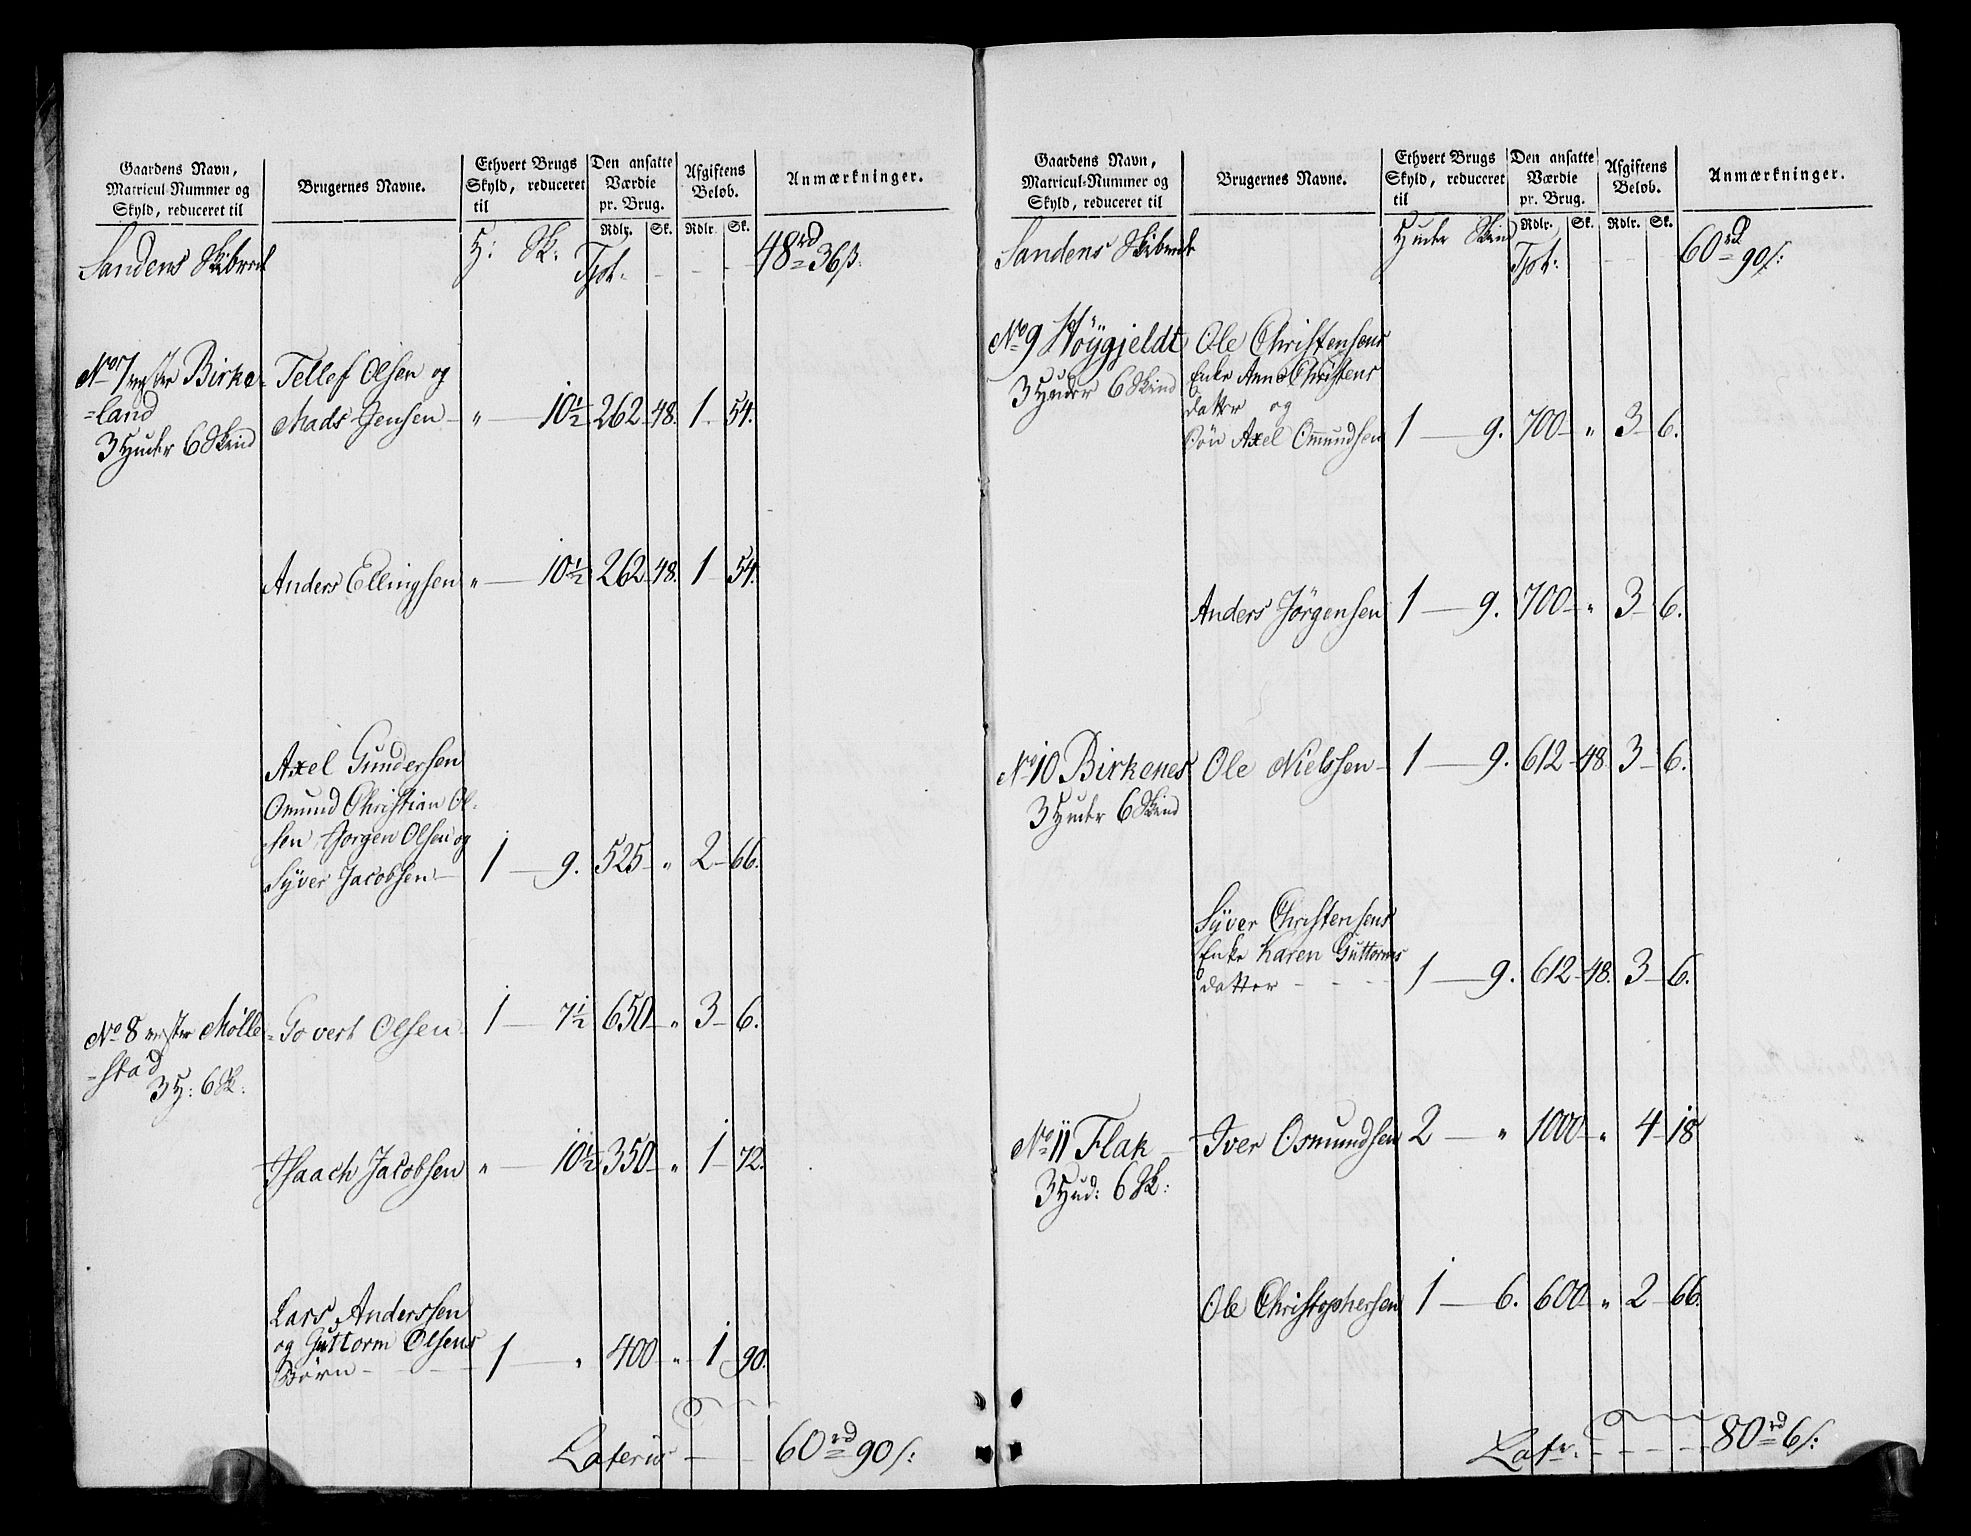 Gaardens Navn,
Matricul-Nummer og
Skyld, reduceret til
Brugernes Navne.
Ethvert Brugs
Skyld, reduceret
til
Den ansatte
Værdie
pr. Brug.
Afgiftens
Beløb.
Anmærkninger.
Rdlr. Sk. Rdlr. Sk.
Sandens Skibrede H: Sk: Tpt. - - - 48rd 36ß:
No 7 vester Birke- Tellef Olsen og
=land Mads Jensen — " — 10½ 262 48. 1 54.
3 Huder 6 Skind
Anders Ellingsen " — 10½ 262 48. 1 54.
Axel Gundersen
Omund Christian Ol-
sen Jørgen Olsen og
Syver Jacobsen — 1 — 9. 525 " 2 66.
No 8 vester Mølle= Govert Olsen 1 — 7½ 650 " 3 6.
=stad
3 H: 6 Sk:
Isaach Jacobsen " — 10½ 350 " 1 72.
Lars Anderssen
og Guttorm Olsens
Börn - - - 1 — " 400 " 1 90.
Lateris - - 60rd 90ß:
Gaardens Navn,
Matricul-Nummer og
Skyld, reduceret til
Brugernes Navne.
Ethvert Brugs
Skyld, reduceret
til
Den ansatte
Værdie
pr. Brug.
Afgiftens
Beløb.
Anmærkninger.
Rdlr. Sk. Rdlr. Sk.
Sandens Skibrede Huder Skind Tpt: - - - 60rd 90ß:
No 9 Höygjeldt Ole Christensens
3 Huder 6 Skind Enke Anne Christens
datter og
Sön Axel Omundsen 1 — 9. 700 " 3 6.
Anders Jörgensen 1 — 9. 700 " 3 6.
No 10 Birkenes Ole Nielssen — 1 — 9. 612 48. 3 6.
3 Huder 6 Skind
Syver Christensens
Enke Karen Guttorms
datter - - - 1 — 9. 612 48. 3 6.
No 11 Flak — Iver Osmundsen 2 — " 1000 " 4 18
3 Hud: 6 Sk:
Ole Christophersen 1 — 6. 600 " 2 66.
Latr. - - - 80rd 6ß: